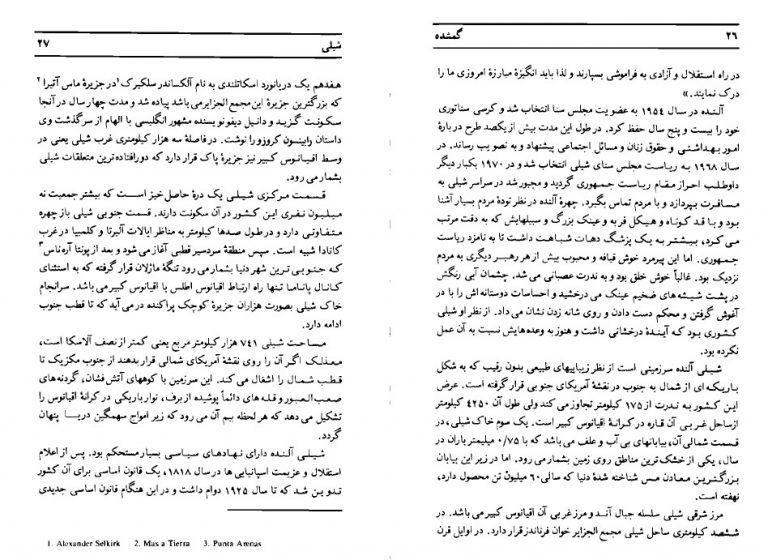 ۲۶ گمشده
در راه استقلال و آزادی به فراموشی بسپارند و لذا باید انگیزهٔ مبارزهٔ امروزی ما را
درک نمایند.»
آلنده در سال ۱۹۵۴ به عضویت مجلس سنا انتخاب شد و کرسی سناتوری
خود را بیست و پنج سال حفظ کرد. در طول این مدت بیش از یکصد طرح در بارهٔ
امور بهداشتی و حقوق زنان و مسائل اجتماعی پیشنهاد و به تصویب رساند. در
سال ۱۹۶۸ به ریاست مجلس سنای شیلی انتخاب شد و در ۱۹۷۰ یکبار دیگر
داوطلب احراز مقام ریاست جمهوری گردید و مجبور شد در سراسر شیلی به
مسافرت بپردازد و با مردم تماس بگیرد. چهرهٔ آلنده در نظر تودهٔ مردم بسیار آشنا
بود و با قد کوتاه و هیکل فربه و عینک بزرگ و سبیلهایش که به دقت مرتب
می‌کرد، بیشتر به یک پزشک دهات شباهت داشت تا به نامزد ریاست
جمهوری. اما این پیرمرد خوش قیافه و محبوب بیش از هر رهبر دیگری به مردم
نزدیک بود. غالباً خوش خلق بود و به ندرت عصبانی می‌شد. چشمان آبی رنگش
در پشت شیشه‌های ضخیم عینک می‌درخشید و احساسات دوستانه‌اش را با در
آغوش گرفتن و محکم دست دادن و روی شانه زدن نشان می‌داد. از نظر او شیلی
کشوری بود که آیندهٔ درخشانی داشت و هنوز به وعده‌هایش نسبت به آن عمل
نکرده بود.
شیلی آلنده سرزمینی است از نظر زیباییهای طبیعی بدون رقیب که به شکل
باریکه‌ای از شمال به جنوب در نقشهٔ آمریکای جنوبی قرار گرفته است. عرض
این کشور به ندرت از ۱۷۵ کیلومتر تجاوز می‌کند ولی طول آن ۴۲۵۰ کیلومتر
از ساحل غربی آن قاره در کرانهٔ اقیانوس کبیر است. یک سوم خاک شیلی، در
قسمت شمالی آن، بیابانهای بی‌آب و علف می‌باشد که با ۰/۷۵ میلیمتر باران در
سال، یکی از خشک‌ترین مناطق روی زمین بشمار می‌رود. اما در زیر این بیابان
بزرگترین معادن مس شناخته شدهٔ دنیا که سالی ۶۰ میلیون تن محصول دارد،
نهفته است.
مرز شرقی شیلی سلسله جبال آند و مرز غربی آن اقیانوس کبیر می‌باشد. در
ششصد کیلومتری ساحل شیلی مجمع الجزایر خوان فرناندز قرار دارد. در اوایل قرن
شیلی ۲۷
هفدهم یک دریانورد اسکاتلندی به نام آلکساندر سلکیرک۱ در جزیرهٔ ماس آتیرا۲
که بزرگترین جزیرهٔ این مجمع الجزایر می‌باشد پیاده شد و مدت چهار سال در آنجا
سکونت گزید و دانیل دیفو نویسنده مشهور انگلیسی با الهام از سرگذشت وی
داستان رابینسون کروزو را نوشت. در فاصلهٔ سه هزار کیلومتری غرب شیلی یعنی در
وسط اقیانوس کبیر نیز جزیرهٔ پاک قرار دارد که دورافتاده‌ترین متعلقات شیلی
بشمار می‌رود.
قسمت مرکزی شیلی یک درهٔ حاصل خیز است که بیشتر جمعیت نه
میلیون نفری این کشور در آن سکونت دارند. قسمت جنوبی شیلی باز چهره
متفاوتی دارد و در طول صدها کیلومتر به مناظر ایالات آلبرتا و کلمبیا در غرب
کانادا شبیه است. سپس منطقهٔ سردسیر قطبی آغاز می‌شود و بعد از پونتا آره‌ناس۳
که جنوبی‌ترین شهر دنیا بشمار می‌رود تنگهٔ ماژلان قرار گرفته که به استثنای
کانال پاناما تنها راه ارتباط اقیانوس اطلس با اقیانوس کبیر می‌باشد. سرانجام
خاک شیلی بصورت هزاران جزیرهٔ کوچک پراکنده در می‌آید که تا قطب جنوب
ادامه دارد.
مساحت شیلی ۷۴۱ هزار کیلومتر مربع یعنی کمتر از نصف آلاسکا است،
معذلک اگر آن را روی نقشهٔ آمریکای شمالی قرار بدهند از جنوب مکزیک تا
قطب شمال را اشغال می‌کند. این سرزمین با کوههای آتش فشان، گردنه‌های
صعب العبور و قله‌های دائماً پوشیده از برف، نوار باریکی در کرانهٔ اقیانوس را
تشکیل می‌دهد که هر لحظه بیم آن می‌رود که زیر امواج سهمگین دریا پنهان
گردد.
شیلی آلنده دارای نهادهای سیاسی بسیار مستحکم بود. پس از اعلام
استقلال و عزیمت اسپانیایی‌ها در سال ۱۸۱۸، یک قانون اساسی برای آن کشور
تدوین شد که تا سال ۱۹۲۵ دوام داشت و در این هنگام قانون اساسی جدیدی
1. Alexander Selkirk 2. Mas a Tierra 3. Punta Arenas